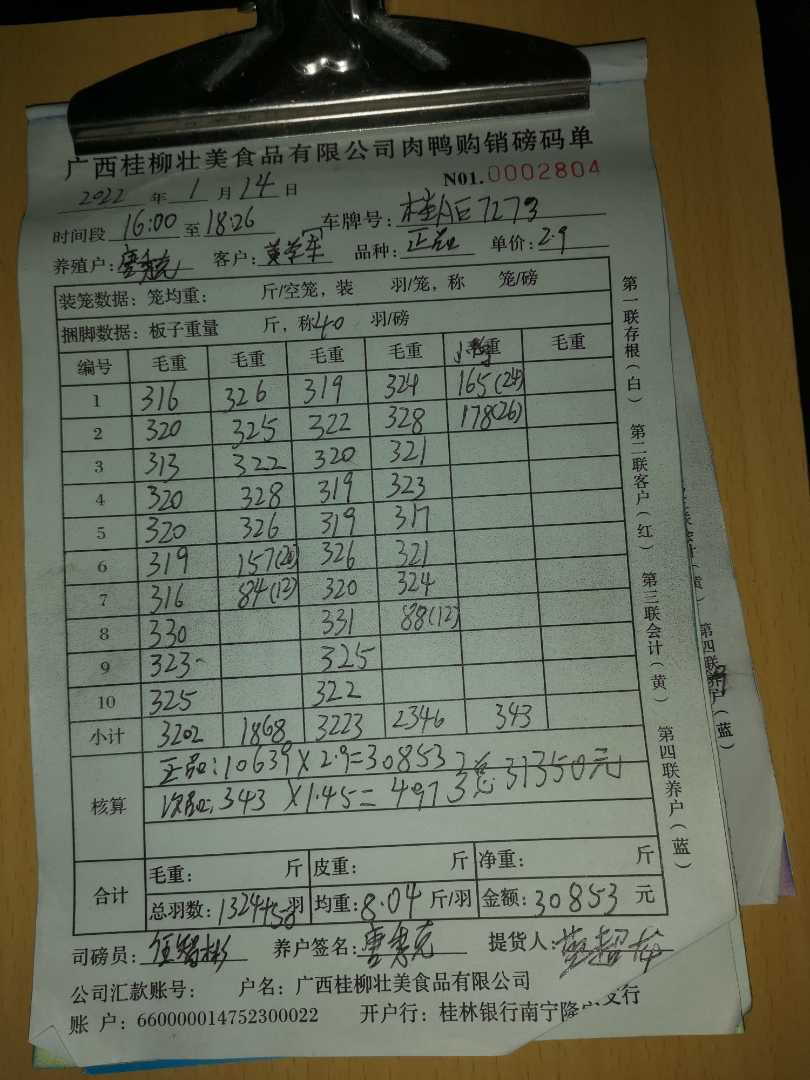 广西桂柳壮美食品有限公司肉鸭购销磅码单
2022 年 1 月 14 日 N01.0002804
时间段 16:00 至 18:26 车牌号: 桂AE7273
养殖户: 客户: 黄学军 品种: 正品 单价: 2.9
装笼数据: 笼均重: 斤/空笼, 装 羽/笼, 称 笼/磅
捆脚数据: 板子重量 斤, 称40 羽/磅
编号 毛重 毛重 毛重 毛重 重 毛重
1 316 326 319 324 165(24)
2 320 325 322 328 178(26)
3 313 322 320 321
4 320 328 319 323
5 320 326 319 317
6 319 157(20) 326 321
7 316 84(12) 320 324
8 330 331 88(12)
9 323 325
10 325 322
小计 3202 1868 3223 2346 343
核算
正品: 10639×2.9=30853
次品: 343×1.45=497 总31350元
合计
毛重: 斤 皮重: 斤 净重: 斤
总羽数: 1324 羽 均重: 8.04 斤/羽 金额: 30853 元
司磅员: 养户签名: 提货人:
公司汇款账号: 户名: 广西桂柳壮美食品有限公司
账 户: 660000014752300022 开户行: 桂林银行南宁隆 支行
第一联存根(白) 第二联客户(红) 第三联会计(黄) 第四联养户(蓝)
第四联养户(蓝)